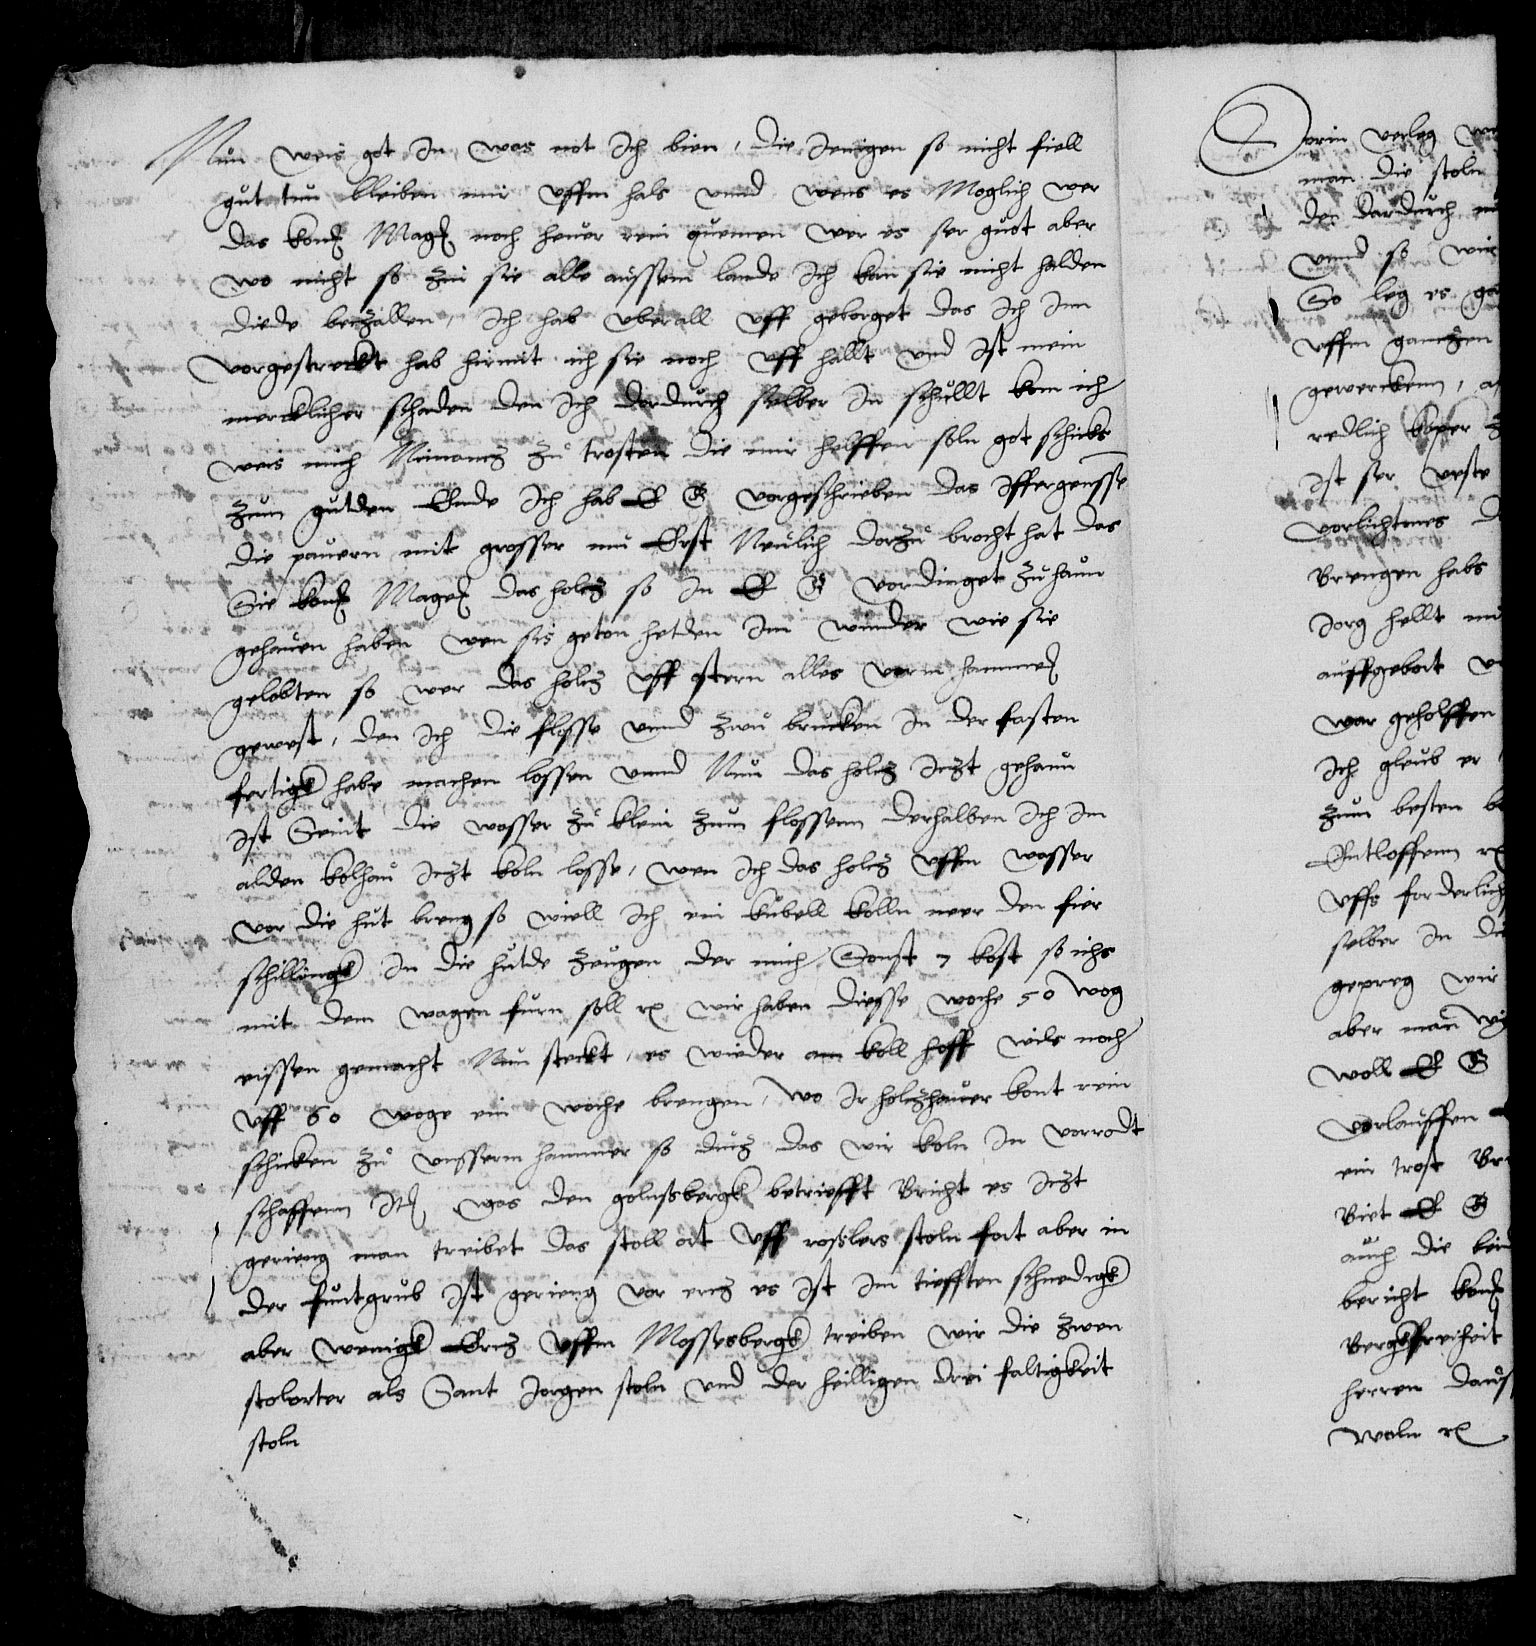 Nun weis got in was not ich bien, die Jenigen so nicht fiell
gut tun bleiben mir uffm hals unnd wens es Moglich wer
das kon Mag noch heuer rein quemen wer es ser guot aber
wo nicht so zin sie alle aussem lande Ich kan sie nicht halden
diede bezallen, ich hab uberall uff geborget das ich Inn
vorgestreckt hab hirmit ich sie noch uff hallt und ist mein
mercklicher schaden den ich dordurch selber in schullt kom ich
weis mich Nimancz zu trosten die mir helffen soln got schicks
zum gutden Ende Ich hab E G vorgeschrieben das
die pauern mit grosser mu Erst Neulich dorzu brocht hat das
Sie kon Mag das holcz so in E G vordinget zuhaun
gehauen haben wen sis geton hetden im winder wie sie
gelobten so wer das holcz uff ostern alles vorm hammer
gewest, den ich die flosse unnd zwu brucken in der fasten
fertigk habe machen lossen unnd Nun das holcz iczt gehaun
ist Seint die wasser zu klein zum flossenn derhalben ich im
alden kolhau iczt koln losse, wen ich das holcz uffm wasser
vor die hut breng so wiell ich ein kubell kolln neer den fier
schillingk in die hutde zeugen der mich Sonst 7 kost so ichs
mit dem wagen furn soll rc wir haben diesse woche 50 wog
eissen gemacht Nun steckt, es wieder am koll hoff wils noch
uff 60 woge ein woche brengen, wo ir holczhauer kont rein
schicken zu unsserm hammer so ducz das wir koln in vorrodt
schaffenn It was den golnssbergk betriefft Bricht es iczt
gerieng man treibet das stoll ort uff rosslers stoln fort aber in
der funtgrub ist gerieng vor ercz es ist im tiefften schnedigk
aber wenigk Ercz uffm Mossesbergk treiben wir die zwen
stolorter als Sant Jorgen stoln und der heilligen drei faltigkeit
stoln
Dorin verleg
man die stoln
der dardurch
unnd so wir
So leg es
uffm ganczen
gewerckenn,
redlich koper
ist ser veste
vorlichtenes
Brengen habs
Jorg hellt
auffgebort
war geholffen
ich gleub er
zum besten
Entloffenn
uffs forderlich
selber in die
gepreg wir
aber man
woll E G
vorlauffen
ein trost
Biet E G
auch die
bericht kon
Bergkfreiheit
herren
woln rc